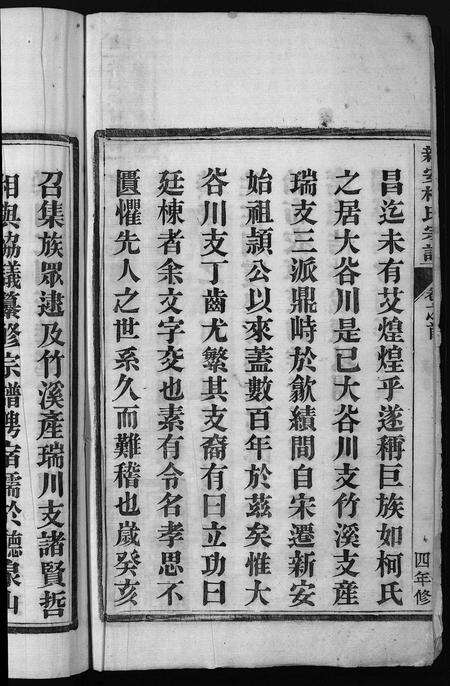 新安柯氏宗譜
卷之首
四年修
昌迄未有艾煌煌乎遂稱巨族如柯氏
之居大谷川是已大谷川支竹溪支產
瑞支三派鼎峙於歙績間自宋遷新安
始祖頴公以來蓋數百年於茲矣惟大
谷川支丁齒尤繁其支裔有曰立功曰
廷棟者余文字交也素有令名孝思不
匱懼先人之世系久而難稽也歲癸亥
召集族眾逮及竹溪產瑞川支諸賢哲
相與協議纂修宗譜聘宿儒於聽泉山